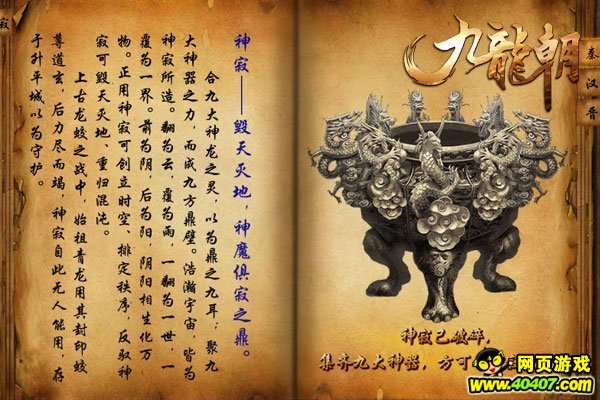 寂
神寂——毁天灭地，神魔俱寂之鼎。
合九大神龙之灵，以为鼎之九耳；聚九
大神器之力，而成九方鼎壁。浩瀚宇宙，皆为
神寂所造。翻为云，覆为雨，一翻为一世，一
覆为一界。前为阴，后为阳，阴阳相生化万
物。正用神寂可创立时空、排定秩序，反驭神
寂可毁天灭地、重归混沌。
上古龙蛟之战中，始祖青龙用其封印蛟
尊道玄，后力尽而竭，神寂自此无人能用，存
于升平城以为守护。
九龍朝
秦汉晋
神寂已破碎，
集齐九大神器，方可
网页游戏
www.40407.com